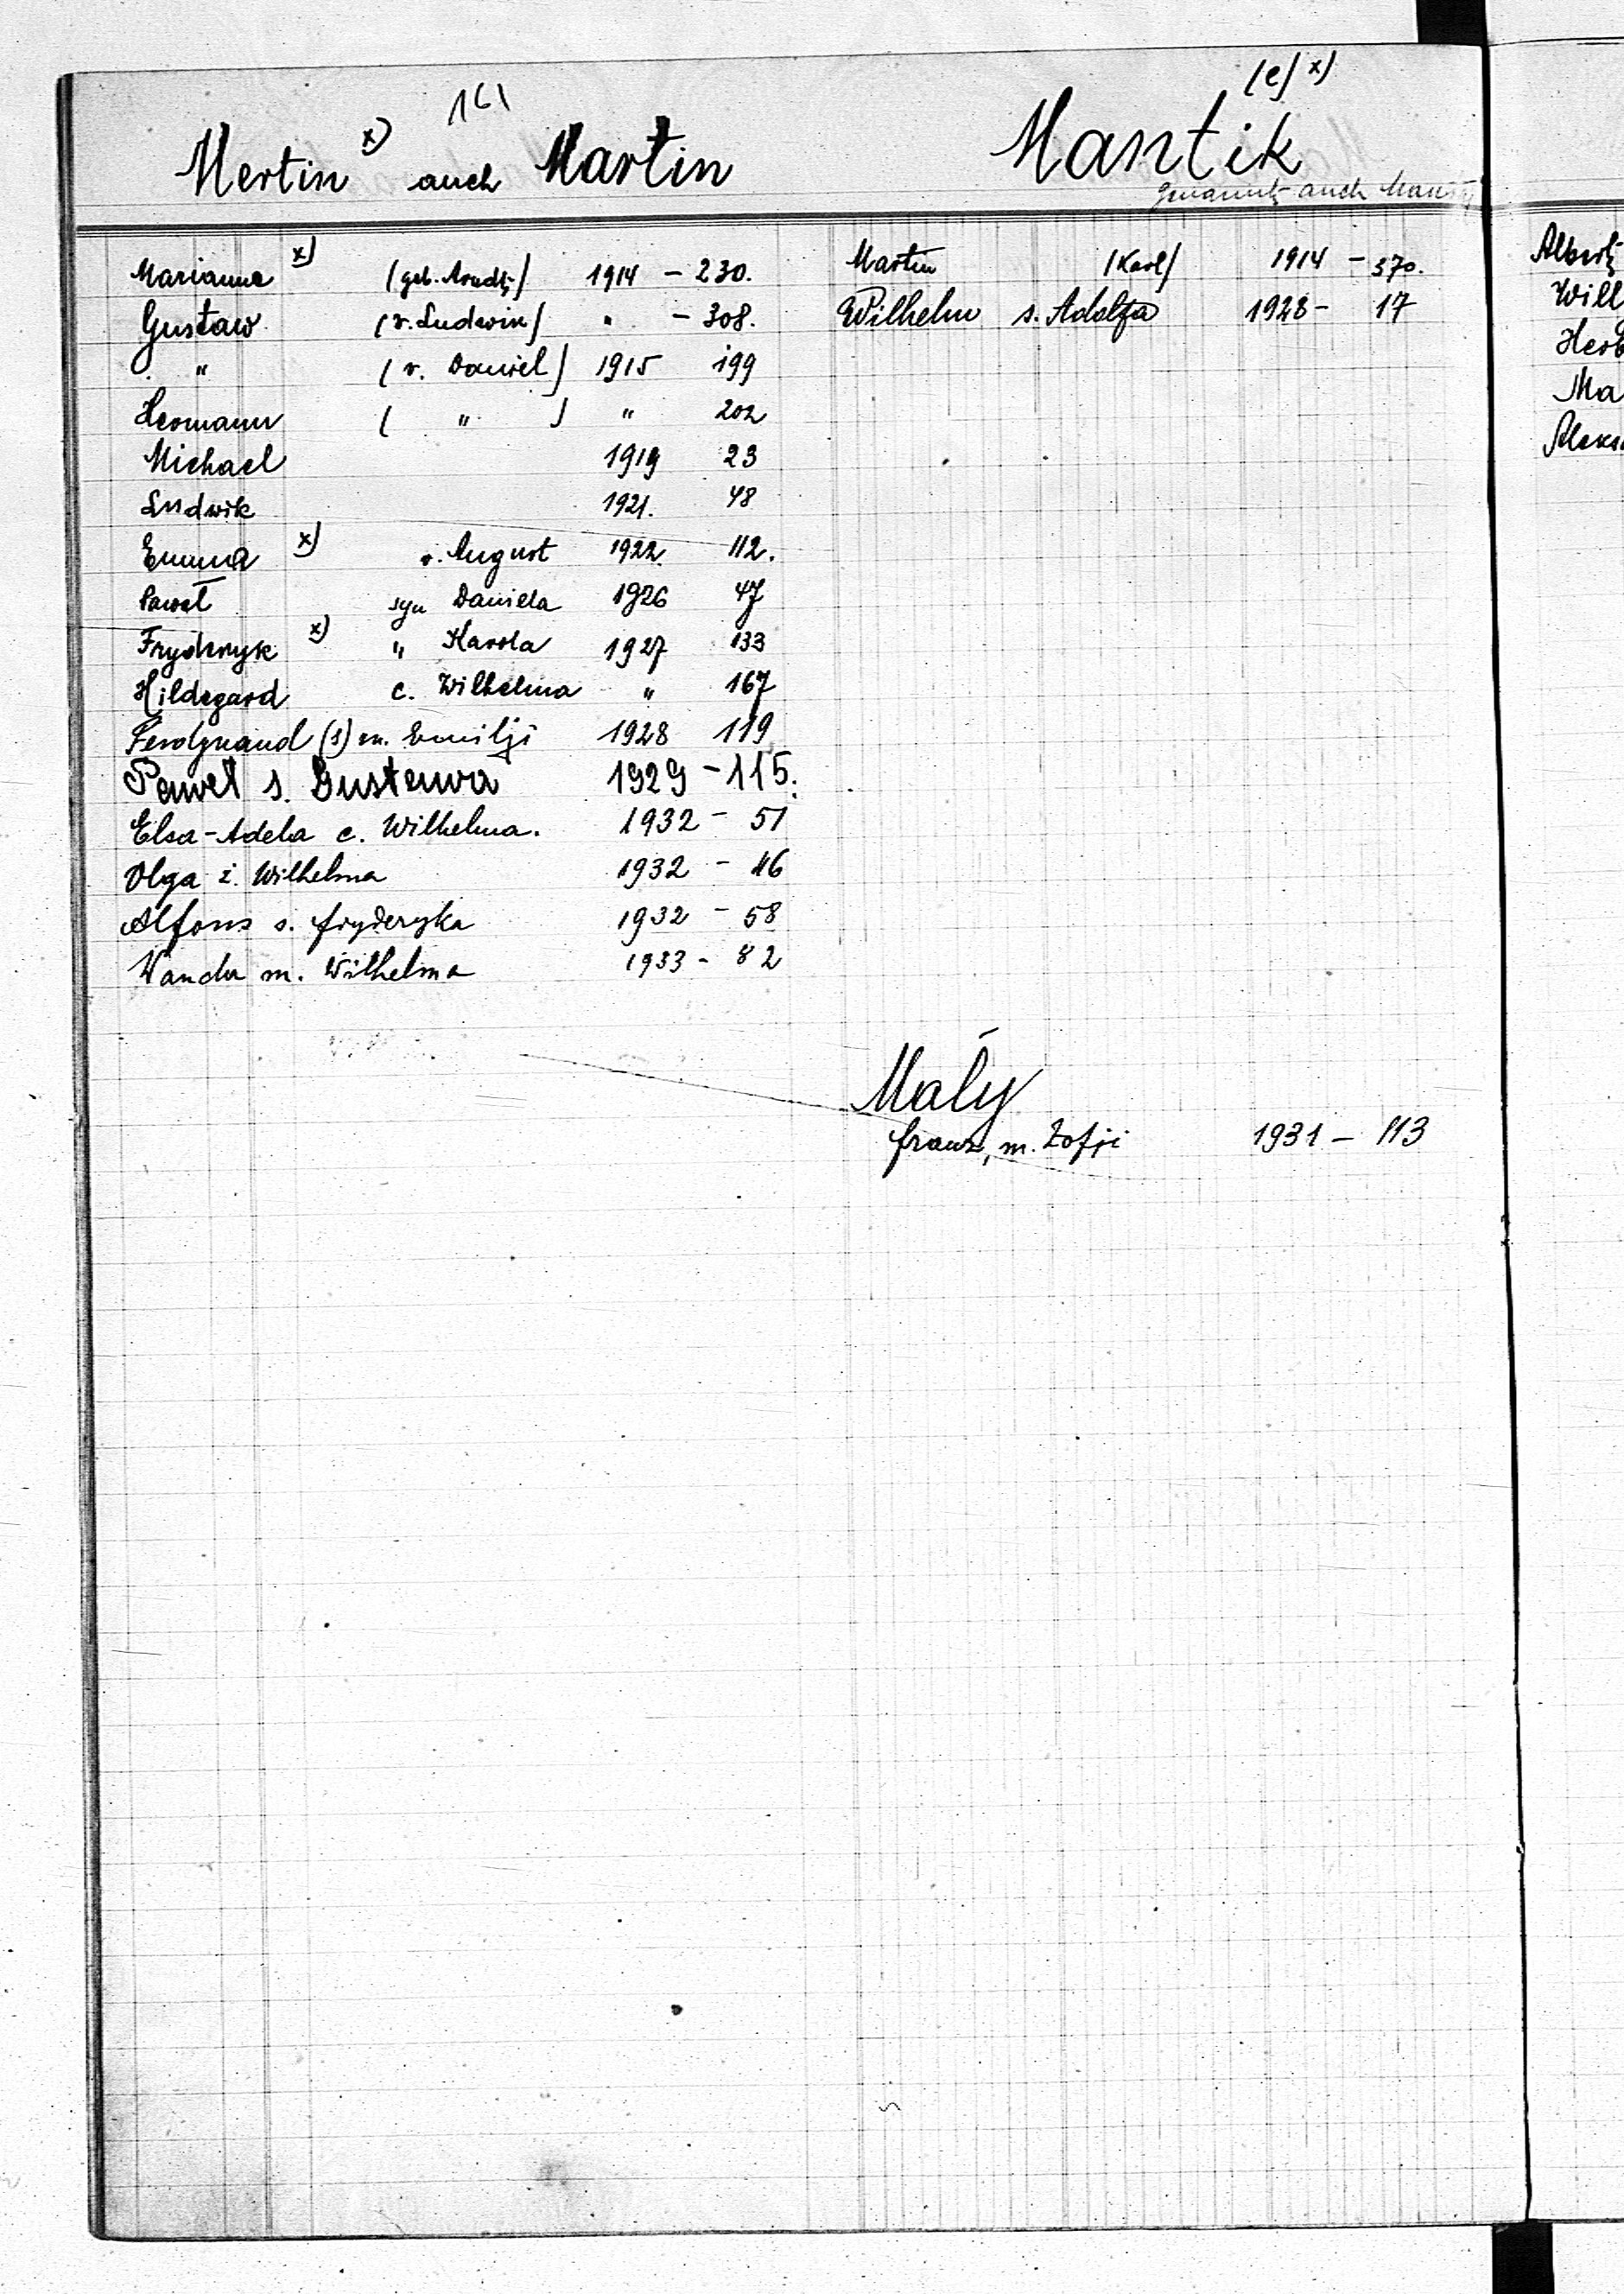 (e) x)
Mertin x) auch Martin
Mantik
genannt auch
Marianne x) (geb. Arndt) 1914 - 230.
Gustaw (v. Ludwik) " - 308.
" (v. Daniel) 1915 199
Hermann ( " ) " 202
Michael 1919 23
Ludwik 1921. 48
Emma x) v. August 1922. 112.
Paweł syn Daniela 1926 47
Fryderyk x) " Karola 1927 133
Hildegard c. Wilhelma " 167
Ferdynand (s) m. Emilji 1928 119
Paweł s. Gustawa 1929 - 115.
Elsa-Adela c. Wilhelma. 1932 - 51
Olga ż. Wilhelma 1932 - 46
Alfons s. Fryderyka 1932 - 58
Wanda m. Wilhelma 1933 - 82
Martin (Karl) 1914 - 370.
Wilhelm s. Adolfa 1928 - 17
Malý
Franz, m. Zofji 1931 - 113
Albert
Will
Herb
Ma
Aleks